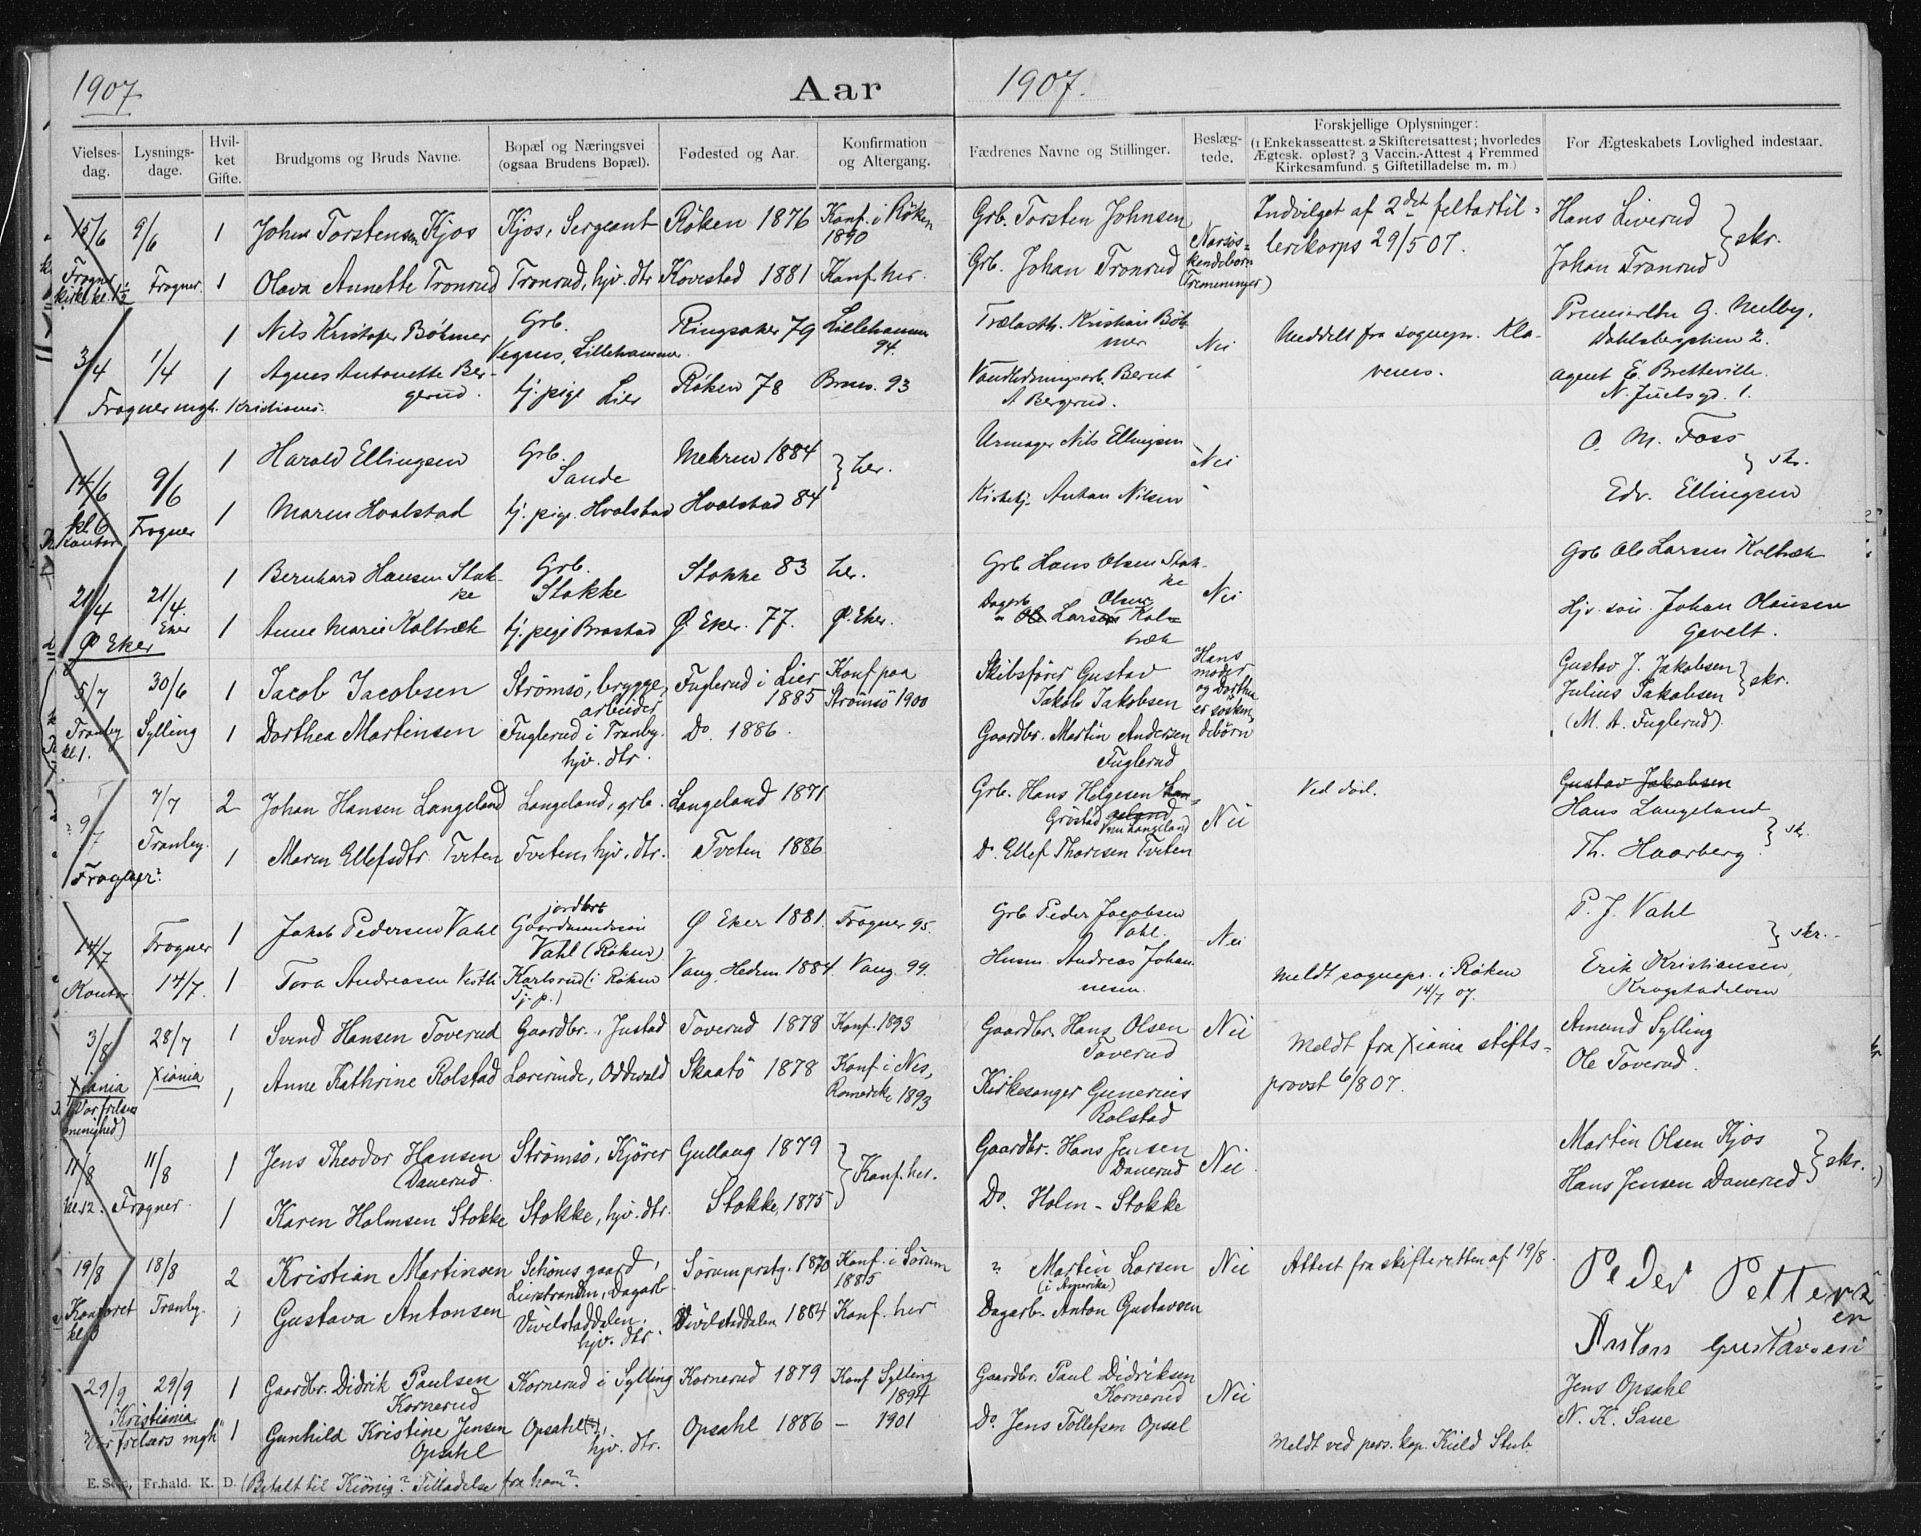 1907 Aar 1907.
Vielses-dag. Lysnings-dage. Hvil-ket Gifte. Brudgoms og Bruds Navne. Bopæl og Næringsvei (ogsaa Brudens Bopæl). Fødested og Aar. Konfirmation og Altergang. Fædrenes Navne og Stillinger. Beslæg-tede. Forskjellige Oplysninger: (1 Enkekasseattest. 2 Skifteretsattest; hvorledes Ægtesk. opløst? 3 Vaccin.-Attest 4 Fremmed Kirkesamfund. 5 Giftetilladelse m. m.) For Ægteskabets Lovlighed indestaar.
15/6 9/6 1 Johan Torstensen Kjos Kjos, Sergeant Røken 1876 Konf. i Røken 1890 Grb. Torsten Johnsen Indvilget af 2det feltartil- Hans Liverud
lerikorps 29/5 07. skr.
Frogner kirke kl. 1½ Frogner. 1 Olava Annette Tronrud Tronrud, hjv. dtr Kovestad 1881 Konf. her. Grb. Johan Tronrud Næsøs-kendebørn (Tremeninger) Johan Tronrud
1 Nils Kristofer Böhmer Grb. Ringsaker 79 Lillehammer 94. Trælasth. Kristian Böh- Premierltn G. Melby,
Vegnes, Lillehammer. mer Nei Meddelt fra sognepr. Kla- Dahlsbergstien 2.
3/4 1/4 1 Agnes Antonette Ber- tj. pige Lier Røken 78 Brms. 93 Vandledningsarb. Bernt venes. agent E. Bretteville
gerud. A Bergerud. N. Juelsgd. 1.
Frogner mgh. Kristiania.
1 Harald Ellingsen Grb. Mehren 1884 her. Urmager Nils Ellingsen Nei O. M. Foss
Sande skr.
14/6 9/6 1 Maren Hvalstad tj. pige. Hvalstad Hvalstad 84 Kirketj. Anton Nilsen Edv. Ellingsen
kl. 6 Kontor Frogner
1 Bernhard Hansen Stok- Grb. Stokke 83 her. Grb Hans Olsen Stok- Nei Grb Ole Larsen Koltræk
ke Stokke ke
21/4 21/4. 1 Anne Marie Koltræk tj. pige Brastad Ø. Eker. 77. Ø. Eker. Dagarb. Ole Larsen Olsen Kol- Hjv. søn Johan Olausen
Ø Eker Eker træk Gevelt.
5/7 30/6 1 Jacob Jacobsen Strømsø, brygge, Fuglerud i Lier Konf paa Skibsfører Gustav Hans moder Gustav J. Jakobsen
arbeider 1885 Strømsø 1900 Jakob Jakobsen og Dorthea Julius Jakobsen skr.
Tranby kl. 1. Sylling 1 Dorthea Martinsen Fuglerud i Tranby. Do. 1886. Gaardbr. Martin Andersen er søsken- (M. A. Fuglerud).
hjv. dtr. Fuglerud debørn
9/7 7/7 2 Johan Hansen Langeland Langeland, grb. Langeland 1871 Grb. Hans Helgesen Lan- Ved død. Gustav Jakobsen
Grøstad geland (nu Langeland) Nei Hans Langeland
Tranby. 1 Maren Ellefsdtr. Tveten Tveten, hjv. dtr. Tveten 1886 Do. Ellef Thoresen Tveten Th. Haarberg skr.
Frogner?
14/7 Frogner 1 Jakob Pedersen Vahl jordbrb Ø Eker 1881. Frogner 95. Grb Peder Jacobsen P. J. Vahl
Gaardmandssøn Vahl. Nei skr.
Vahl (Røken)
Kontor 14/7. 1 Tora Andreasen Vestli Karlsrud (i Røken Vang, Hedm. 1884. Vang. 99. Husm. Andreas Johan Meldt sognepr. i Røken Erik Kristiansen,
tj. p.) nesen. 14/7 07. Krogstadelven
3/8 28/7 1 Svend Hansen Toverud Gaardbr., Justad Toverud 1878 Konf. 1893 Gaardbr. Hans Olsen Nei Meldt fra Xiania stifts- Amund Sylling
Toverud provst 6/8 07. Ole Toverud.
Xiania Xiania 1 Anne Kathrine Rolstad Lærerinde, Oddevald Skaatø 1878 Konf i Nes, Kirkesanger Gunerius
(Vor frelsers menighed) Romerike 1893 Rolstad
11/8 11/8 1 Jens Theodor Hansen Strømsø, Kjører Gullaug 1879 Konf. her. Gaardbr. Hans Jensen Nei Martin Olsen Kjos
(Danerud. Danerud Hans Jensen Danerud skr.
kl. 12. Frogner. 1 Karen Holmsen Stokke Stokke, hjv. dtr. Stokke, 1875 Do. Holm - Stokke
19/8 18/8 2 Kristian Martinsen Schönes gaard, Sørum prstg. 1870 Konf. i Sørum 1885 " Martin Larsen Nei Attest fra skifteretten af 19/8. Peder Petters
Lierstranden, Dagarb. (i Amerika) en
Kontoret kl. Tranby. 1 Gustava Antonsen Vivelstaddalen, Vivelstaddalen 1884 Konf. her Dagarb. Anton Gustavsen Anton Gustavsen
hjv. dtr.
29/9 29/9 1 Gaardbr. Didrik Paulsen Kornerud i Sylling Kornerud 1879 Konf Sylling Gaardbr. Paul Didriksen Nei Jens Opsahl
Kornerud 1894 Kornerud N. K. Saue
Kristiania 1 Gunhild Kristine Jensen Opsahl, Opsahl 1886 — 1901 Do. Jens Tollefsen Opsal
Vor frelsers mgh. Opsahl hjv. dtr. Meldt ved pers. kap. Kield Stub.
E. Sem, Fr.hald. K. D. (Betalt til Kiönig? Tilladelse fra ham?